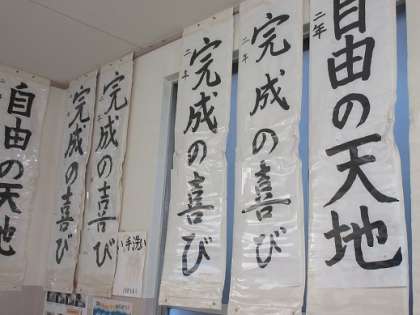 二年
自由の天地
二年
完成の喜び
二年
完成の喜び
い手洗い
二年
完成の喜び
完成の喜び
自由の天地